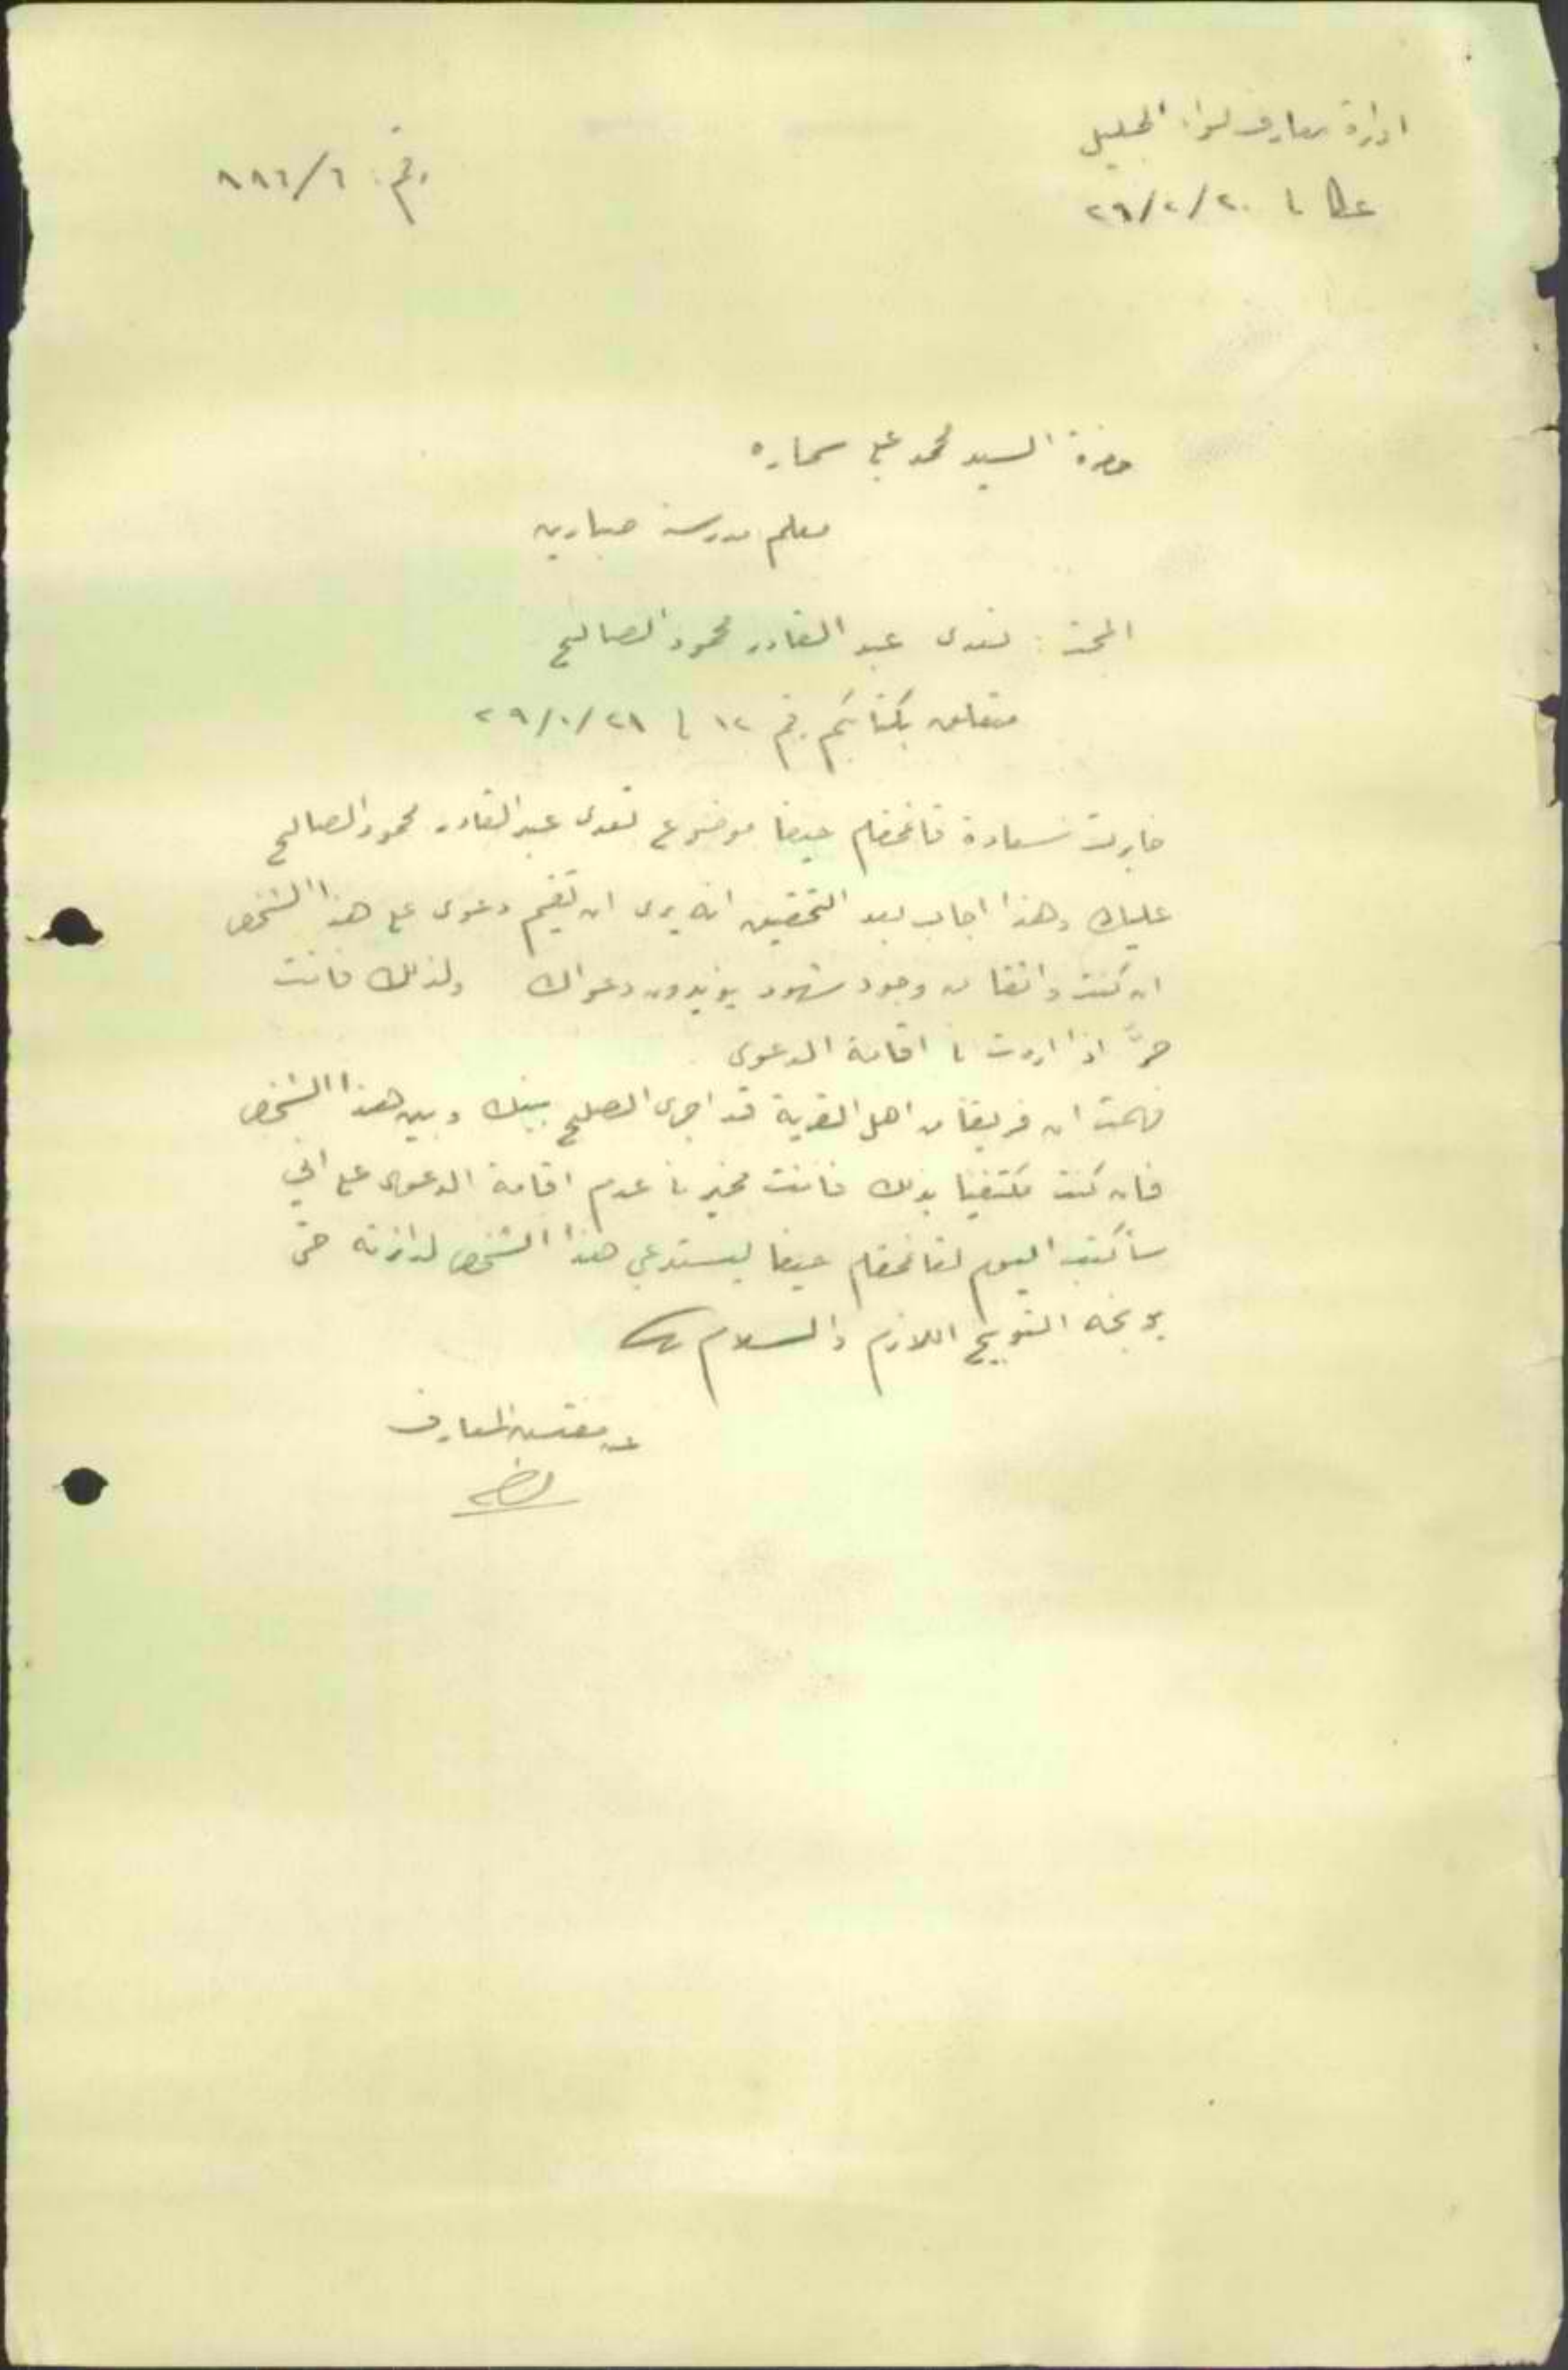 ادارة معارف لواء الجليل
عكا في ٢٠/٢/٢٩
رقم: ٨٨٦/٦
حضرة السيد محمد علي سماره
معلم مدرسة صبارين
المبحث: تعدى عبد القادر محمود الصالح
متعلق بكتابكم رقم ١٢ في ٢٩/١/٢٨
خابرت سعادة قائمقام حيفا موضوع تعدى عبد القادر محمود الصالح
عليك وهذا اجاب بعد التحقيق انه يرى ان تقيم دعوى على هذا الشخص
ان كنت واثقا من وجود شهود يؤيدون دعواك ولذلك فانت
حرٌّ اذا اردت في اقامة الدعوى
فهمت ان فريقا من اهل القرية قد اجرى الصلح بينك وبين هذا الشخص
فان كنت مكتفيا بذلك فانت مخير في عدم اقامة الدعوى على اني
سأكتب اليوم لقائمقام حيفا ليستدعي هذا الشخص لدائرته حتى
يوبخه التوبيخ اللازم والسلام
عن مفتش المعارف